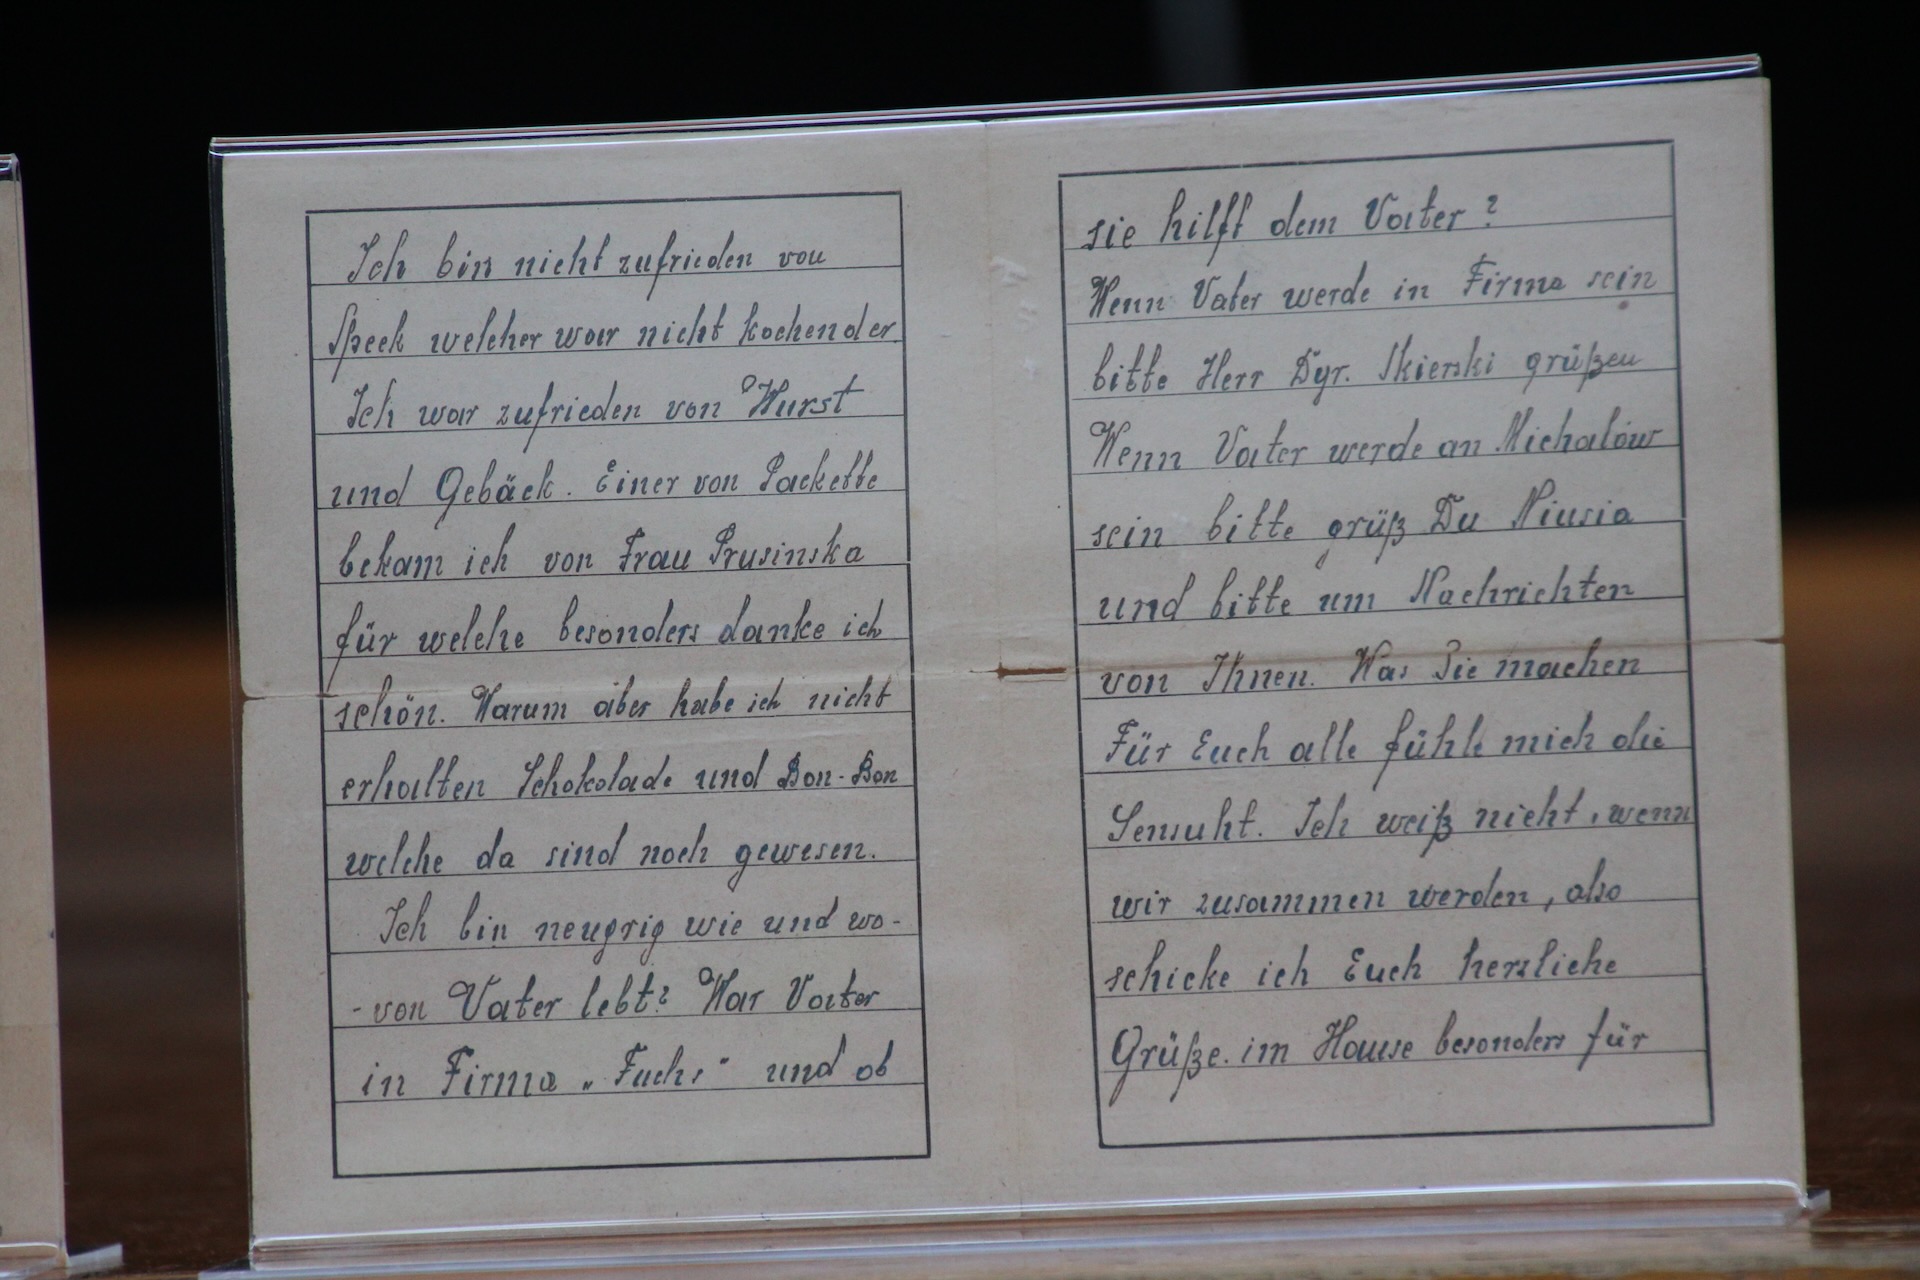 Ich bin nicht zufrieden von
Speek welcher war nicht kochender.
Ich war zufrieden von Wurst
und Gebäck. Einer von Packette
bekam ich von Frau Prusinska
für welche besonders danke ich
schön. Warum aber habe ich nicht
erhalten Schokolade und Bon-Bon
welche da sind noch gewesen.
Ich bin neugrig wie und wo-
-von Vater lebt? War Vater
in Firma „Fuchs" und ob
sie hilft dem Vater?
Wenn Vater werde in Firma sein
bitte Herr Dyr. Skierski grüßen
Wenn Vater werde an Michalów
sein bitte grüß Du Niusia
und bitte um Nachrichten
von Ihnen. Was Sie machen
Für Euch alle fühle mich die
Sensuht. Ich weiß nicht, wenn
wir zusammen werden, also
schicke ich Euch herzliche
Grüße. im Hause besonders für